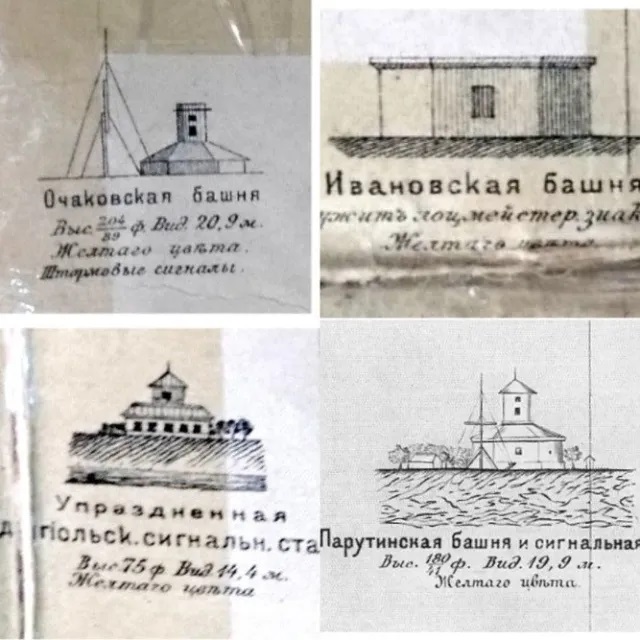 Очаковская башня
Выс. 204/89 ф. Вид. 20,9 м.
Желтаго цвѣта.
Штормовые сигналы.
Ивановская башня
ужитъ лоцмейстер. знак
Желтаго цвѣта.
Упраздненная
гіольск. сигнальн. ста
Выс. 75 ф. Вид. 14,4 м.
Желтаго цвѣта
Парутинская башня и сигнальная
Выс. 180/41 ф. Вид. 19,9 м.
Желтаго цвѣта.